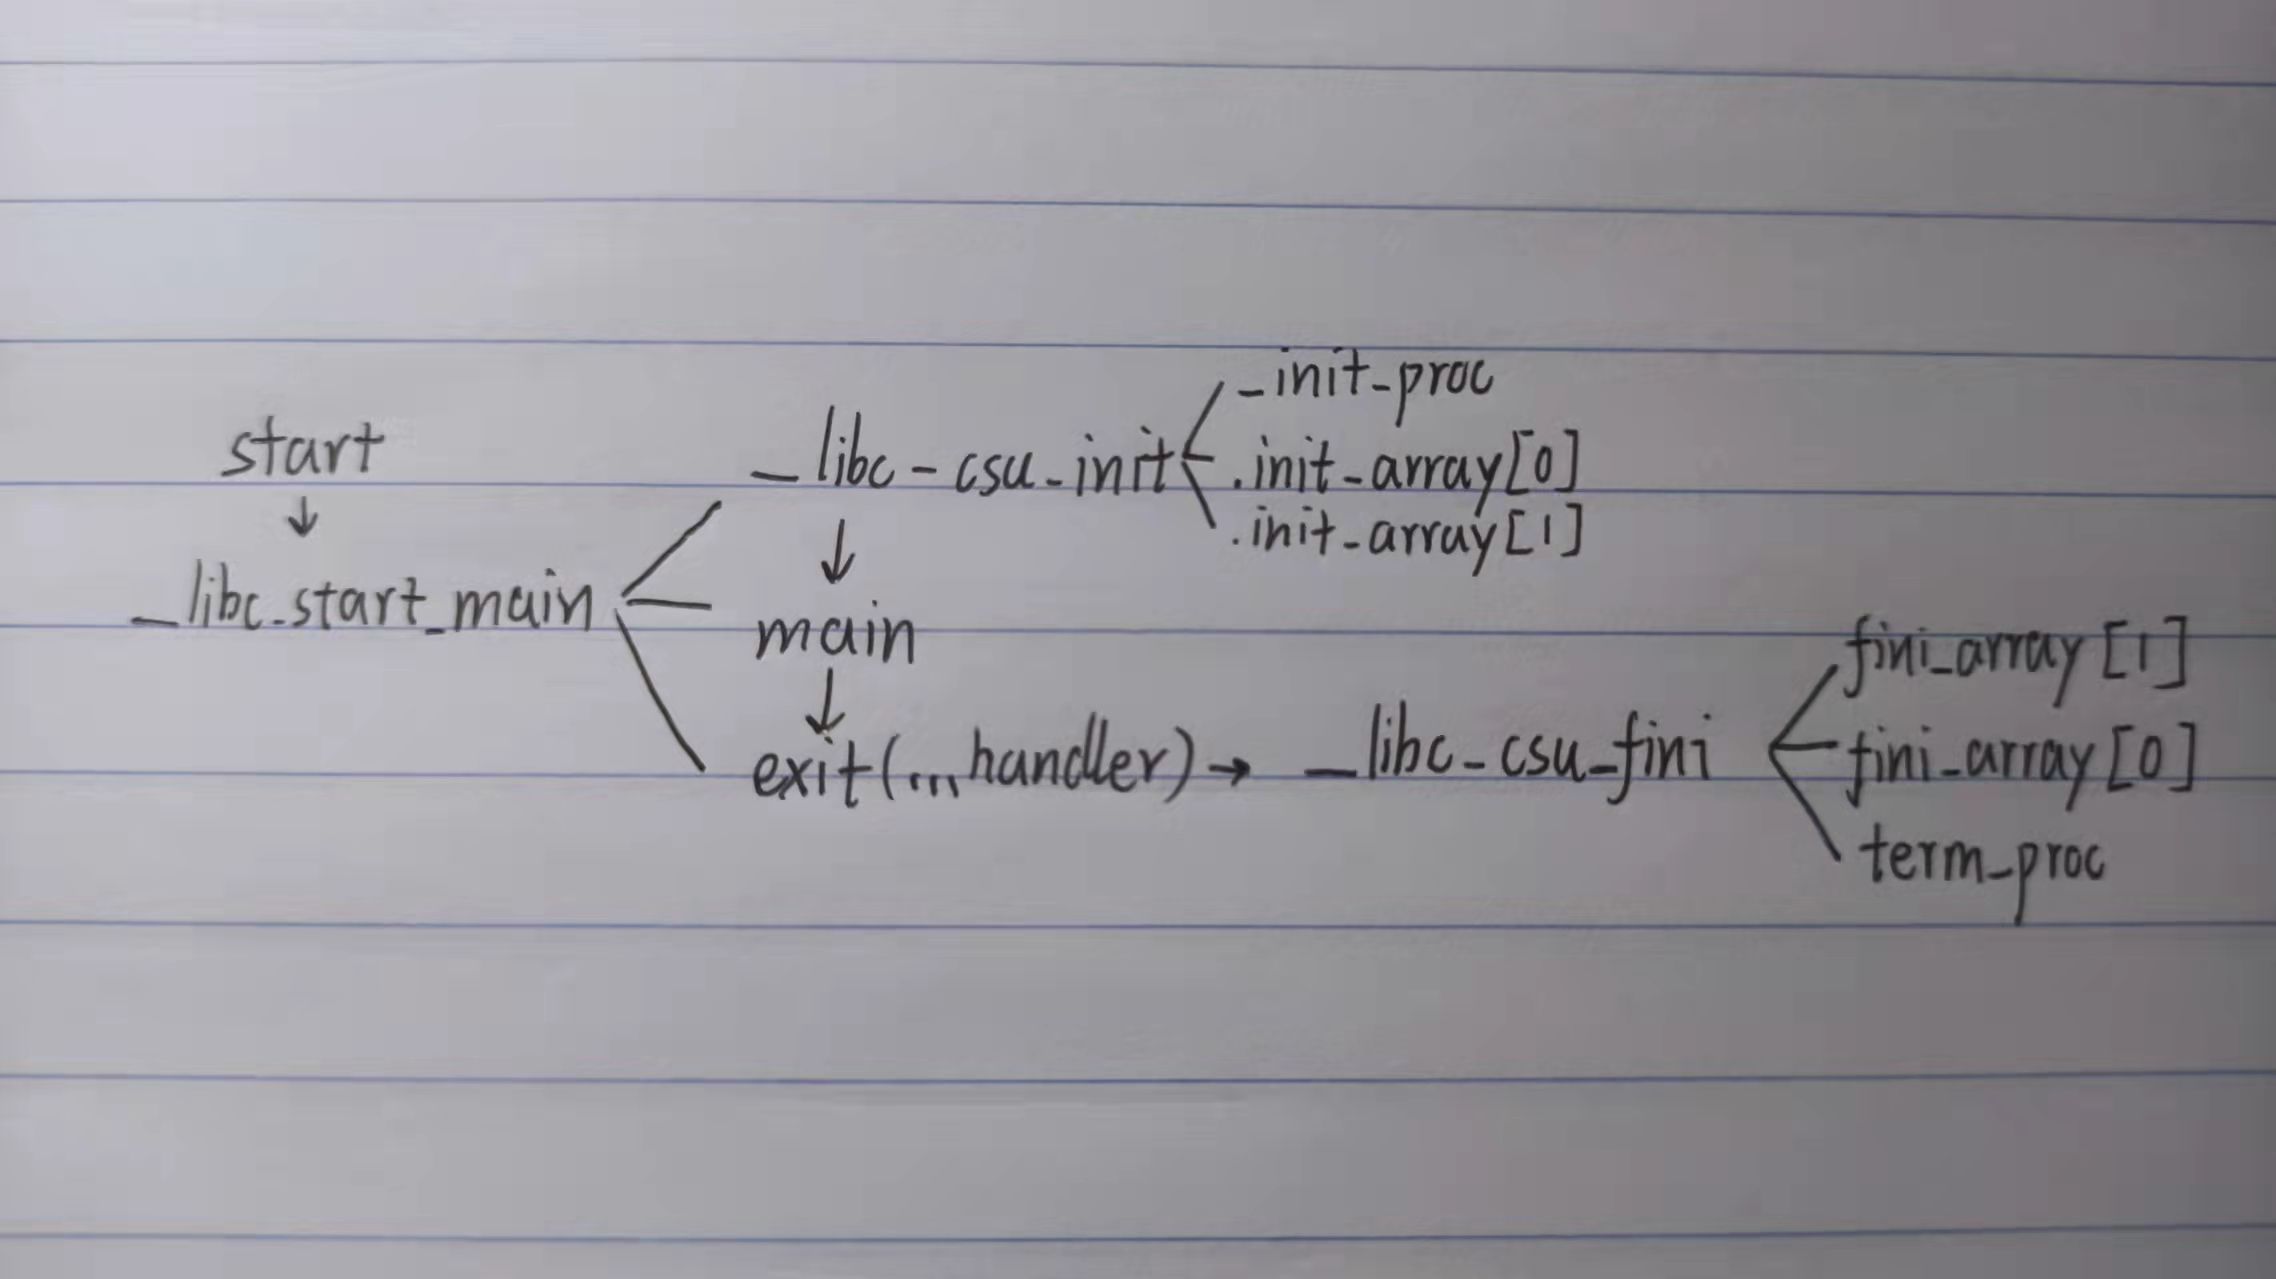 start
↓
_libc_start_main
_libc_csu_init
_init_proc
.init_array[0]
.init_array[1]
↓
main
↓
exit(...handler) → _libc_csu_fini
fini_array[1]
fini_array[0]
term_proc